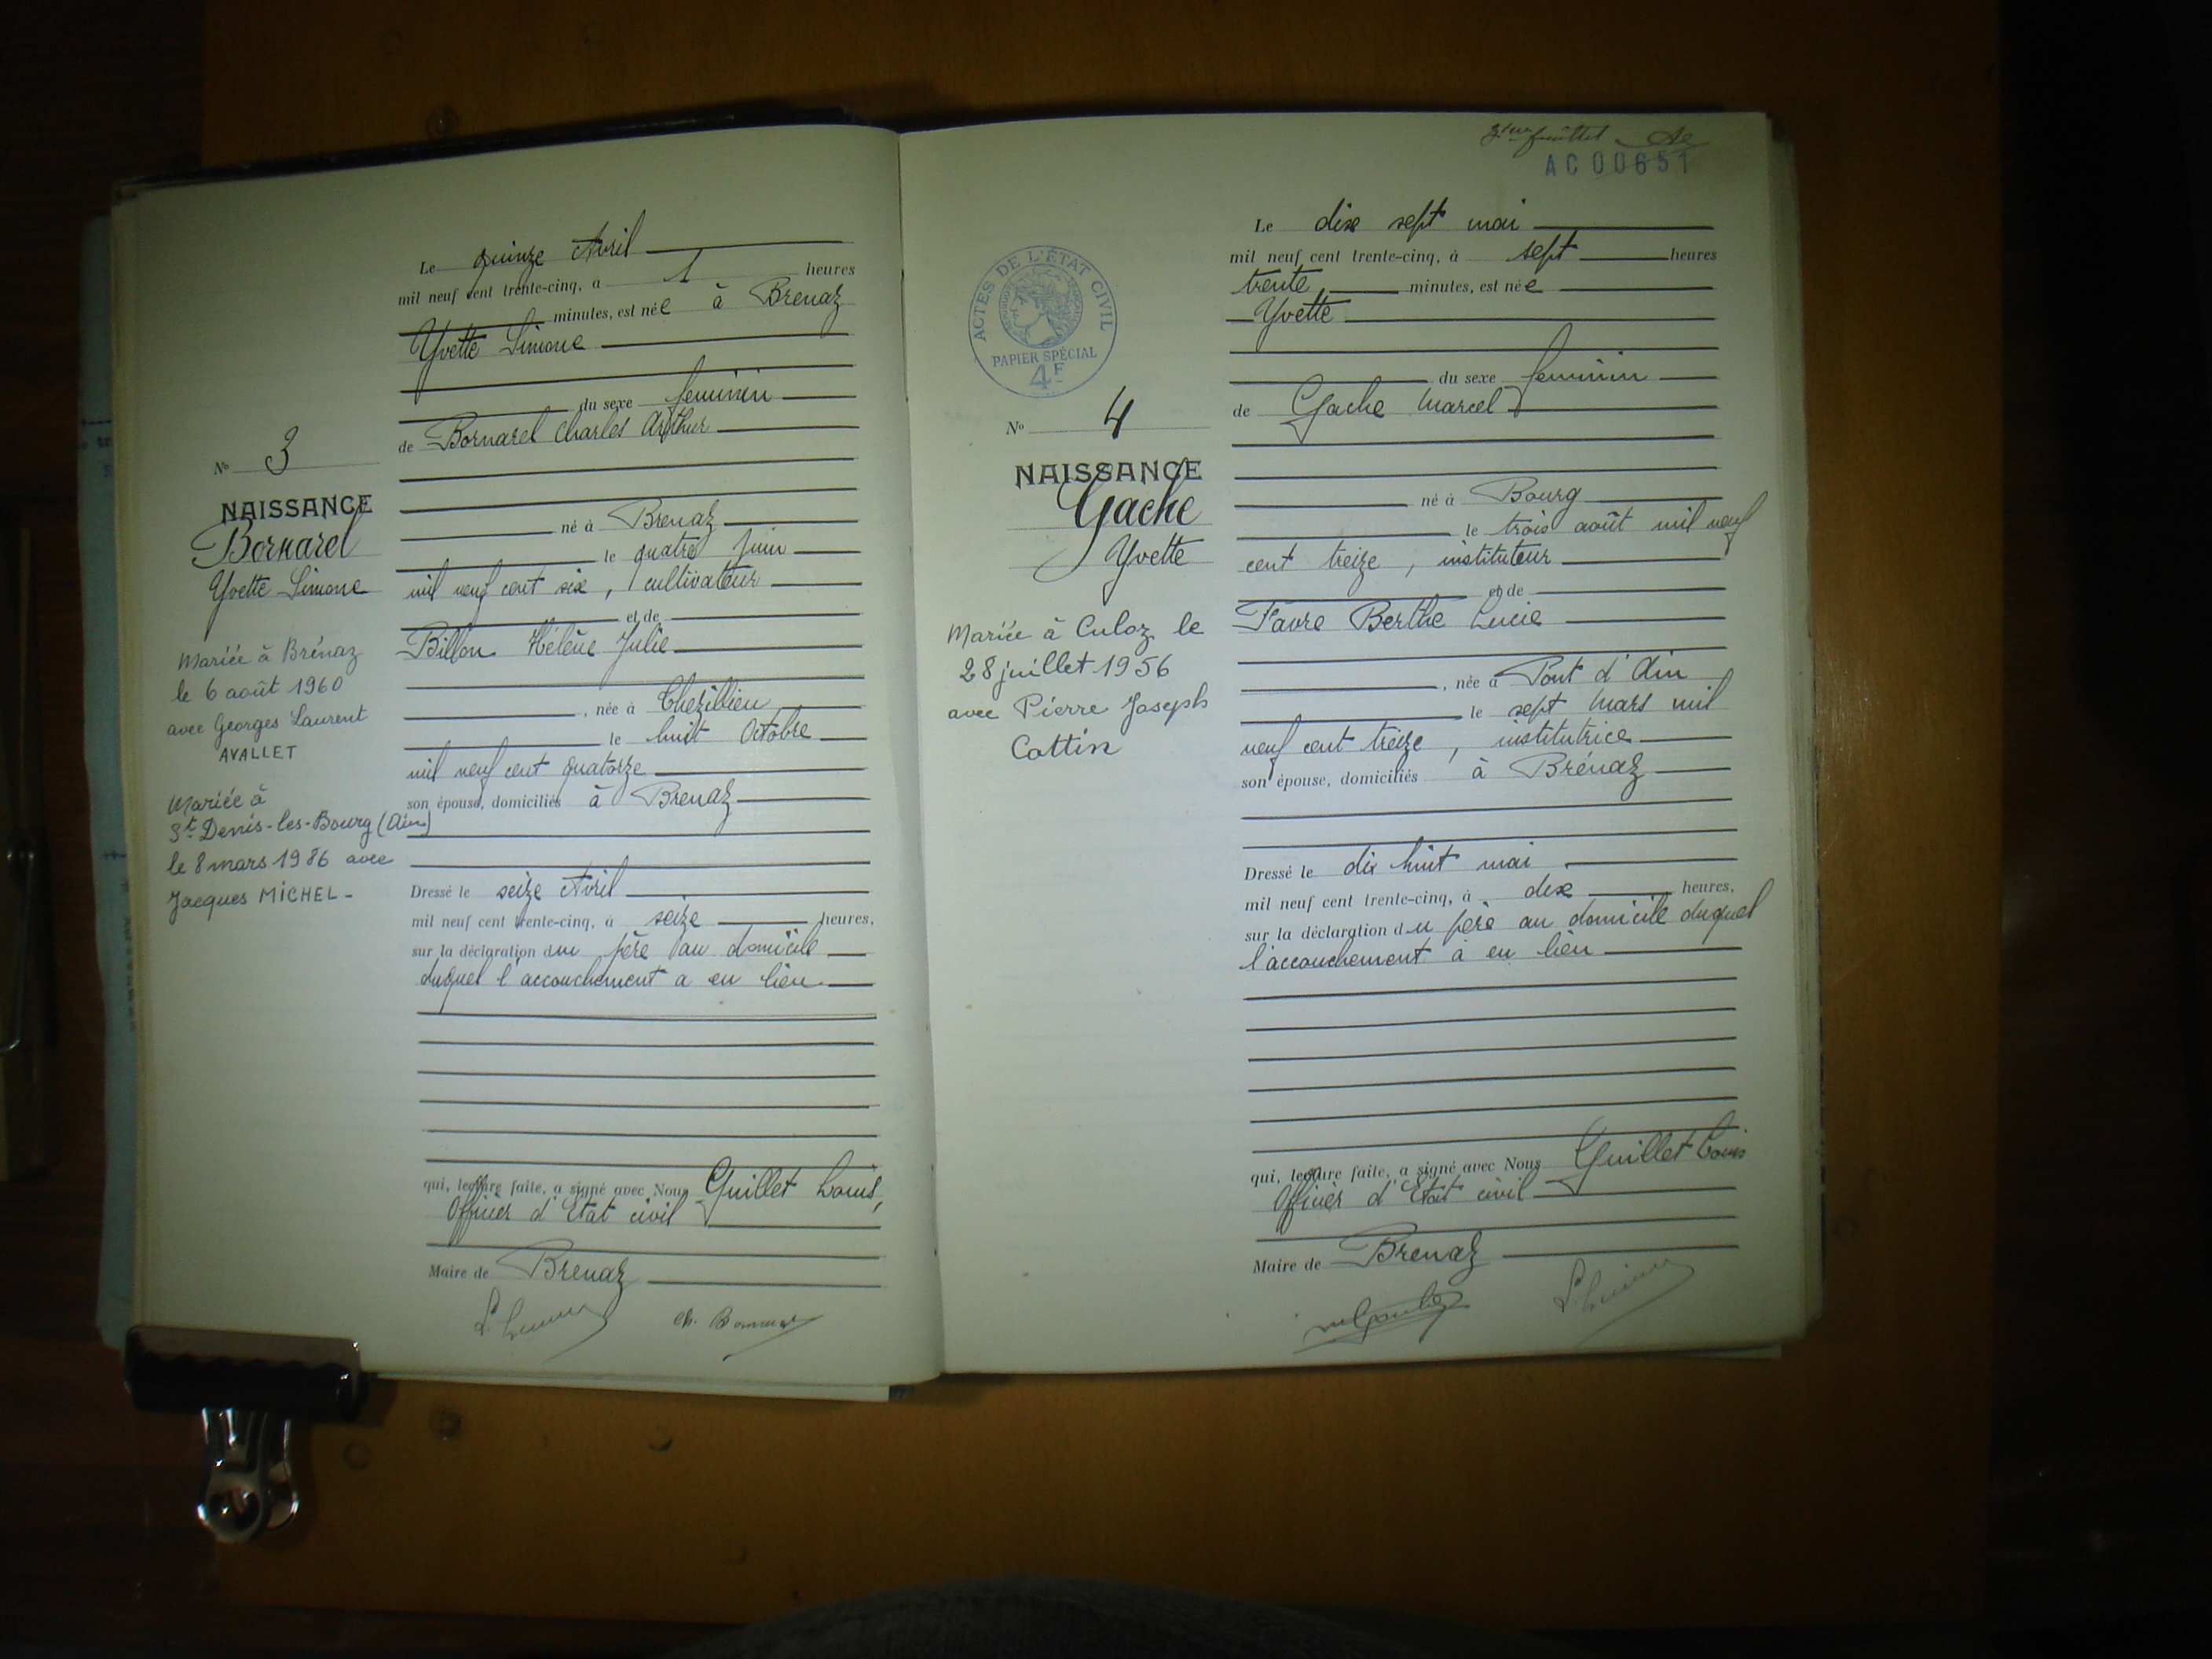 Le quinze Avril
mil neuf cent trente-cinq, à 1 heures
minutes, est née à Brenaz
Yvette Simone
du sexe feminin
de Bornarel Charles Arthur
né à Brenaz
le quatre Juin
mil neuf cent six, cultivateur
et de
Billon Hélène Julie
, née à Chezillieu
le huit Octobre
mil neuf cent quatorze
son épouse, domiciliés à Brenaz
Dressé le seize Avril
mil neuf cent trente-cinq, à seize heures,
sur la déclaration du père au domicile
duquel l'accouchement a eu lieu
qui, lecture faite, a signé avec Nous Guillet Louis,
Officier d'Etat civil
Maire de Brenaz
Nº 3
NAISSANCE
Bornarel
Yvette Simone
Mariée à Brénaz
le 6 août 1960
avec Georges Laurent
AVALLET
Mariée à
St Denis-les-Bourg (Ain)
le 8 mars 1986 avec
Jacques MICHEL -
feuillet
AC 00651
ACTES DE L'ÉTAT CIVIL
PAPIER SPÉCIAL
4F
Nº 4
NAISSANCE
Gache
Yvette
Mariée à Culoz le
28 juillet 1956
avec Pierre Joseph
Cottin
Le dix sept mai
mil neuf cent trente-cinq, à sept heures
trente minutes, est née
Yvette
du sexe feminin
de Gache Marcel
né à Bourg
le trois août mil neuf
cent treize, instituteur
et de
Favre Berthe Lucie
, née à Pont d'Ain
le sept mars mil
neuf cent treize, institutrice
son épouse, domiciliés à Brénaz
Dressé le dix huit mai
mil neuf cent trente-cinq, à dix heures,
sur la déclaration du père au domicile duquel
l'accouchement a eu lieu
qui, lecture faite, a signé avec Nous Guillet Louis
Officier d'Etat civil
Maire de Brenaz